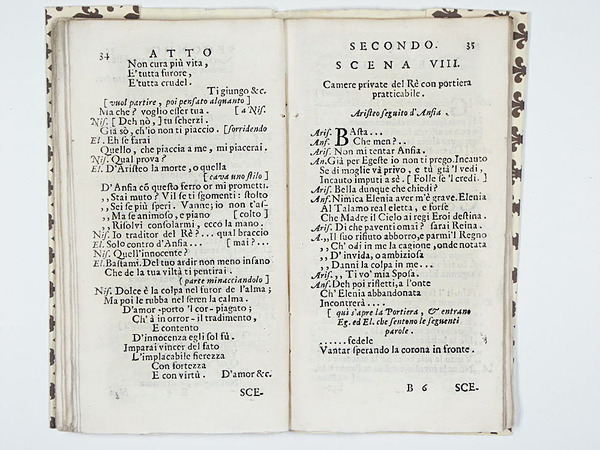 34 ATTO
Non cura più vita,
E' tutta furore,
E' tutta crudel.
Ti giungo &c.
[ vuol partire, poi pensato alquanto ]
Ma che? voglio esser tua. [ a Nis.
Nis. [ Deh nò, ] tu scherzi.
Già sò, ch'io non ti piaccio. [ sorridendo
El. Eh se farai
Quello, che piaccia a me, mi piacerai.
Nis. Qual prova?
El. D'Aristeo la morte, o quella
[ cava uno stilo ]
D'Ansia cō questo ferro or mi prometti.
,, Stai muto? Vil se ti sgomenti: stolto
,, Sei se più speri. Vanne; io non t'as-
,, Ma se animoso, e piano [ colto ]
,, Risolvi consolarmi, ecco la mano.
Nis. Io traditor del Rè?... qual braccio
El. Solo contro d'Ansia... [ mai?...
Nis. Quell'innocente?
El. Bastami. Del tuo ardir non meno insano
Che de la tua viltà ti pentirai.
( parte minacciandolo ]
Nis. Dolce è la colpa nel furor de l'alma;
Ma poi le rubba nel seren la calma.
D'amor -porto 'l cor- piagato;
Ch' à in orror- il tradimento,
E contento
D'innocenza egli sol fù.
Imparai vincer del fato
L'implacabile fierezza
Con fortezza
E con virtù. D'amor &c.
SCE-
SECONDO. 35
SCENA VIII.
Camere private del Rè con portiera
pratticabile.
Aristeo seguito d'Ansia.
Aris. BAsta...
Ans. Che men?..
Aris. Non mi tentar Ansia.
An. Già per Egeste io non ti prego. Incauto
Se di moglie và privo, e tù già 'l vedi,
Incauto imputi a sè. [ Folle se 'l credi. ]
Aris. Bella dunque che chiedi?
Ans. Nimica Elenia aver m'è grave. Elenia
Al Talamo real eletta, e forse
Che Madre il Cielo ai regi Eroi destina.
Aris. Di che paventi omai? sarai Reina.
A. ,, Il suo rifiuto abborro, e parmi 'l Regno
,, Ch' odi in me la cagione, onde notata
,, D' invida, o ambiziosa
,, Danni la colpa in me...
Aris. ,, Ti vo' mia Sposa.
Ans. Deh poi rifletti, a l'onte
Ch' Elenia abbandonata
Incontrerà....
[ qui s'apre la Portiera, & entrano
Eg. ed El. che sentono le seguenti
parole.
......fedele
Vantar sperando la corona in fronte.
B 6 SCE-